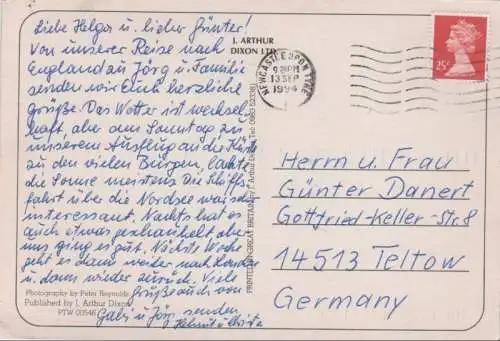 Liebe Helga u. lieber Günter!
Von unserer Reise nach
England zu Jörg u. Familie
senden wir Euch herzliche
Grüße. Das Wetter ist wechsel-
haft, aber am Sonntag zu
unserem Ausflug an die Küste
zu den vielen Burgen, lachte
die Sonne meistens. Die Schiffs-
fahrt über die Nordsee war sehr
interessant. Nachts hat es
auch etwas geschaukelt aber
uns ging es gut. Nächste Woche
geht es dann weiter nach London
u. dann wieder zurück. Viele
Grüße auch von
Gabi u. Jörg senden
Helmut u. Christa
Photography by Peter Reynolds
Published by J. Arthur Dixon
PTW 00546
J. ARTHUR
DIXON LTD
PRINTED IN GREAT BRITAIN J. Arthur Dixon Tel: 0983 523381
NEWCASTLE UPON TYNE
PM
13 SEP
1994
25
Herrn u. Frau
Günter Danert
Gottfried-Keller-Str. 8
14513 Teltow
Germany